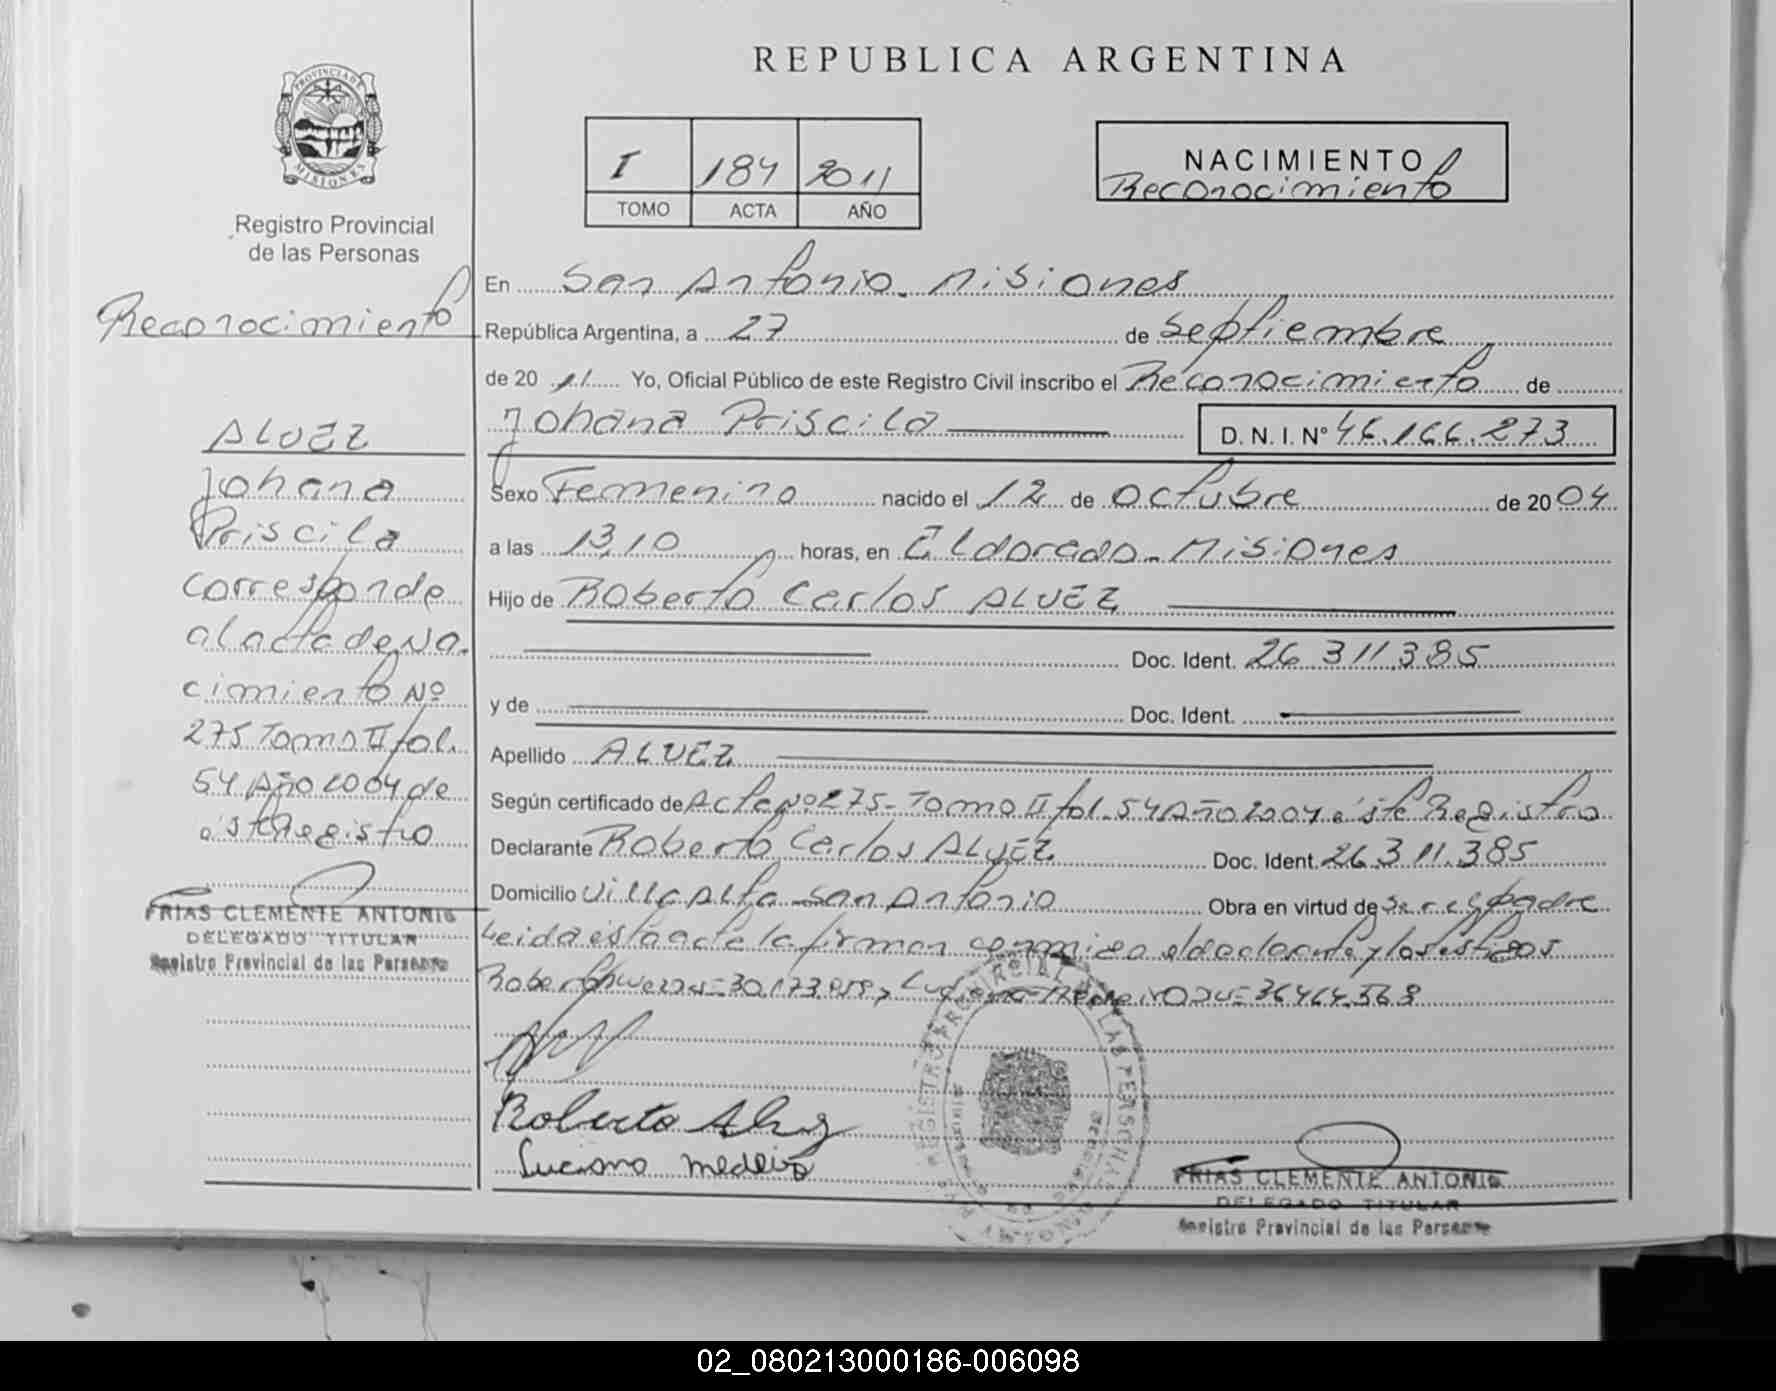 REPUBLICA ARGENTINA
PROVINCIA DE
MISIONES
Registro Provincial
de las Personas
I 184 2011
TOMO ACTA AÑO
NACIMIENTO
Reconocimiento
Reconocimiento
ALVEZ
Johana
Priscila
corresponde
al acta de Na
cimiento Nº
275 Tomo II fol.
54 Año 2004 de
éste Registro
FRIAS CLEMENTE ANTONIO
DELEGADO TITULAR
Registro Provincial de las Personas
En San Antonio. Misiones
República Argentina, a 27 de Septiembre
de 20 11 Yo, Oficial Público de este Registro Civil inscribo el Reconocimiento de
Johana Priscila D. N. I. Nº 46.166.273
Sexo Femenino nacido el 12 de Octubre de 20 04
a las 13,10 horas, en Eldorado - Misiones
Hijo de Roberto Carlos ALVEZ
Doc. Ident. 26.311.385
y de Doc. Ident.
Apellido ALVEZ
Según certificado de Acta Nº 275 - Tomo II fol. 54 Año 2004 éste Registro
Declarante Roberto Carlos ALVEZ Doc. Ident. 26.311.385
Domicilio Villa Alta San Antonio Obra en virtud de ser el padre
Leida esta acta la firman conmigo el declarante y los testigos
36464.568
Roberto Alvez
Luciano medeiro
FRIAS CLEMENTE ANTONIO
DELEGADO TITULAR
Registro Provincial de las Personas
02_080213000186-006098